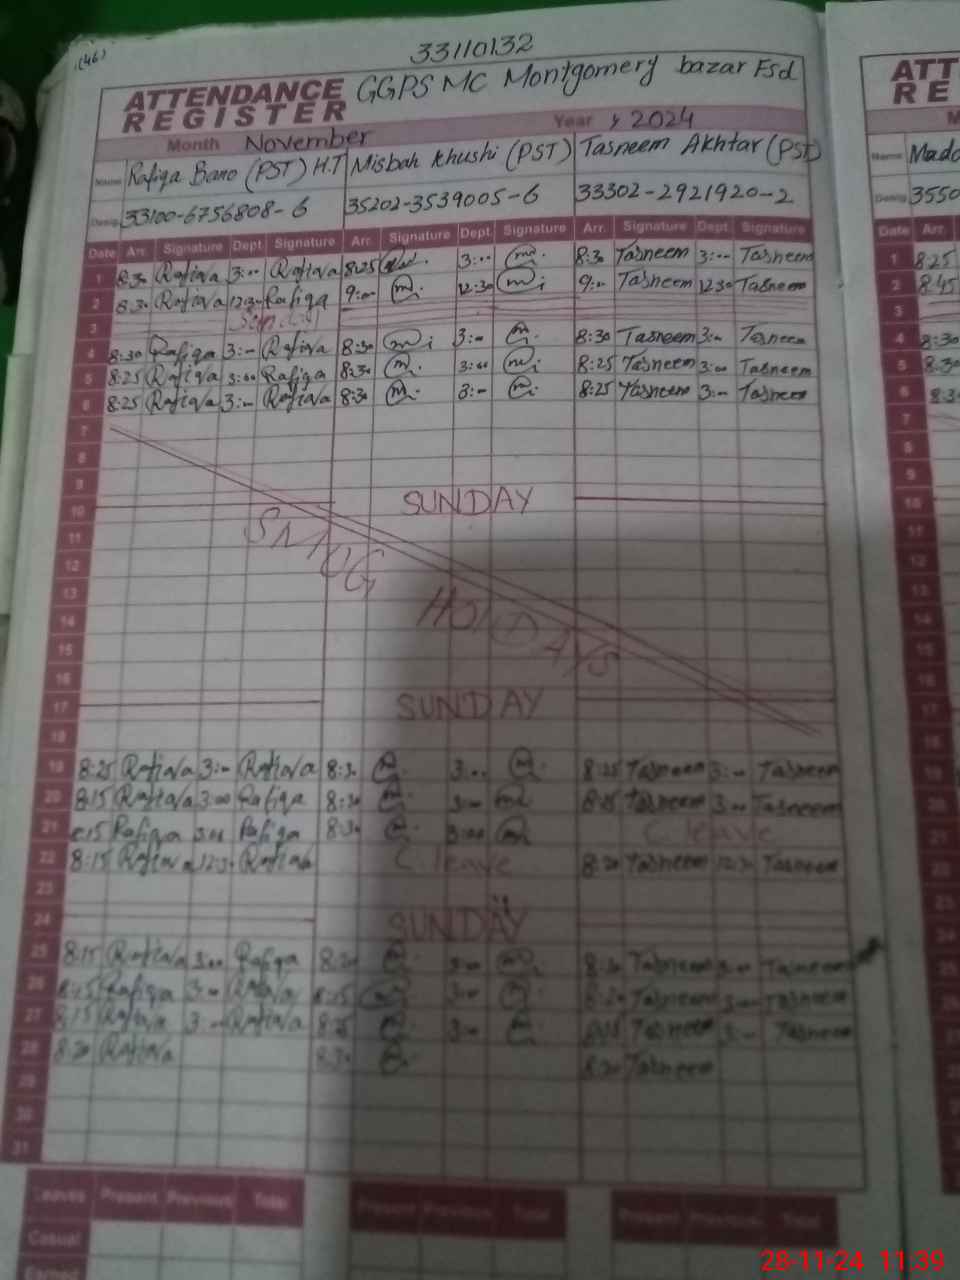 (46)
33110132
ATTENDANCE REGISTER GGPS MC Montgomery bazar Fsd
Month November Year 2024
Name Rafiqa Bano (PST) H.T Misbah Khushi (PST) Tasneem Akhtar (PST)
Desig. 33100-6756808-6 35202-3539005-6 33302-2921920-2
Date Arr. Signature Dept. Signature Arr. Signature Dept. Signature Arr. Signature Dept. Signature
1 8:30 Rafiqa 3:00 Rafiqa 8:25 3:00 8:30 Tasneem 3:00 Tasneem
2 8:30 Rafiqa 12:30 Rafiqa 9:00 12:30 9:00 Tasneem 12:30 Tasneem
3 Sunday
4 8:30 Rafiqa 3:00 Rafiqa 8:30 3:00 8:30 Tasneem 3:00 Tasneem
5 8:25 Rafiqa 3:00 Rafiqa 8:30 3:00 8:25 Tasneem 3:00 Tasneem
6 8:25 Rafiqa 3:00 Rafiqa 8:30 3:00 8:25 Tasneem 3:00 Tasneem
7
8
9
10 SUNDAY
11 SMOG
12
13
14 HOLIDAYS
15
16
17 SUNDAY
18
19 8:25 Rafiqa 3:00 Rafiqa 8:30 3:00 8:25 Tasneem 3:00 Tasneem
20 8:15 Rafiqa 3:00 Rafiqa 8:30 3:00 8:25 Tasneem 3:00 Tasneem
21 8:15 Rafiqa 3:00 Rafiqa 8:30 3:00 C. leave
22 8:15 Rafiqa 12:30 Rafiqa C. leave 8:20 Tasneem 12:30 Tasneem
23
24 SUNDAY
25 8:15 Rafiqa 3:00 Rafiqa 8:30 3:00 8:30 Tasneem 3:00 Tasneem
26 Rafiqa 3:00 Rafiqa 3:00 8:20 Tasneem 3:00 Tasneem
27 8:15 Rafiqa 3:00 Rafiqa 3:00 8:15 Tasneem 3:00 Tasneem
28 8:20 Rafiqa 8:30 8:20 Tasneem
29
30
31
Leaves Present Previous Total Present Previous Total Present Previous Total
Casual
28-11-24 11:39